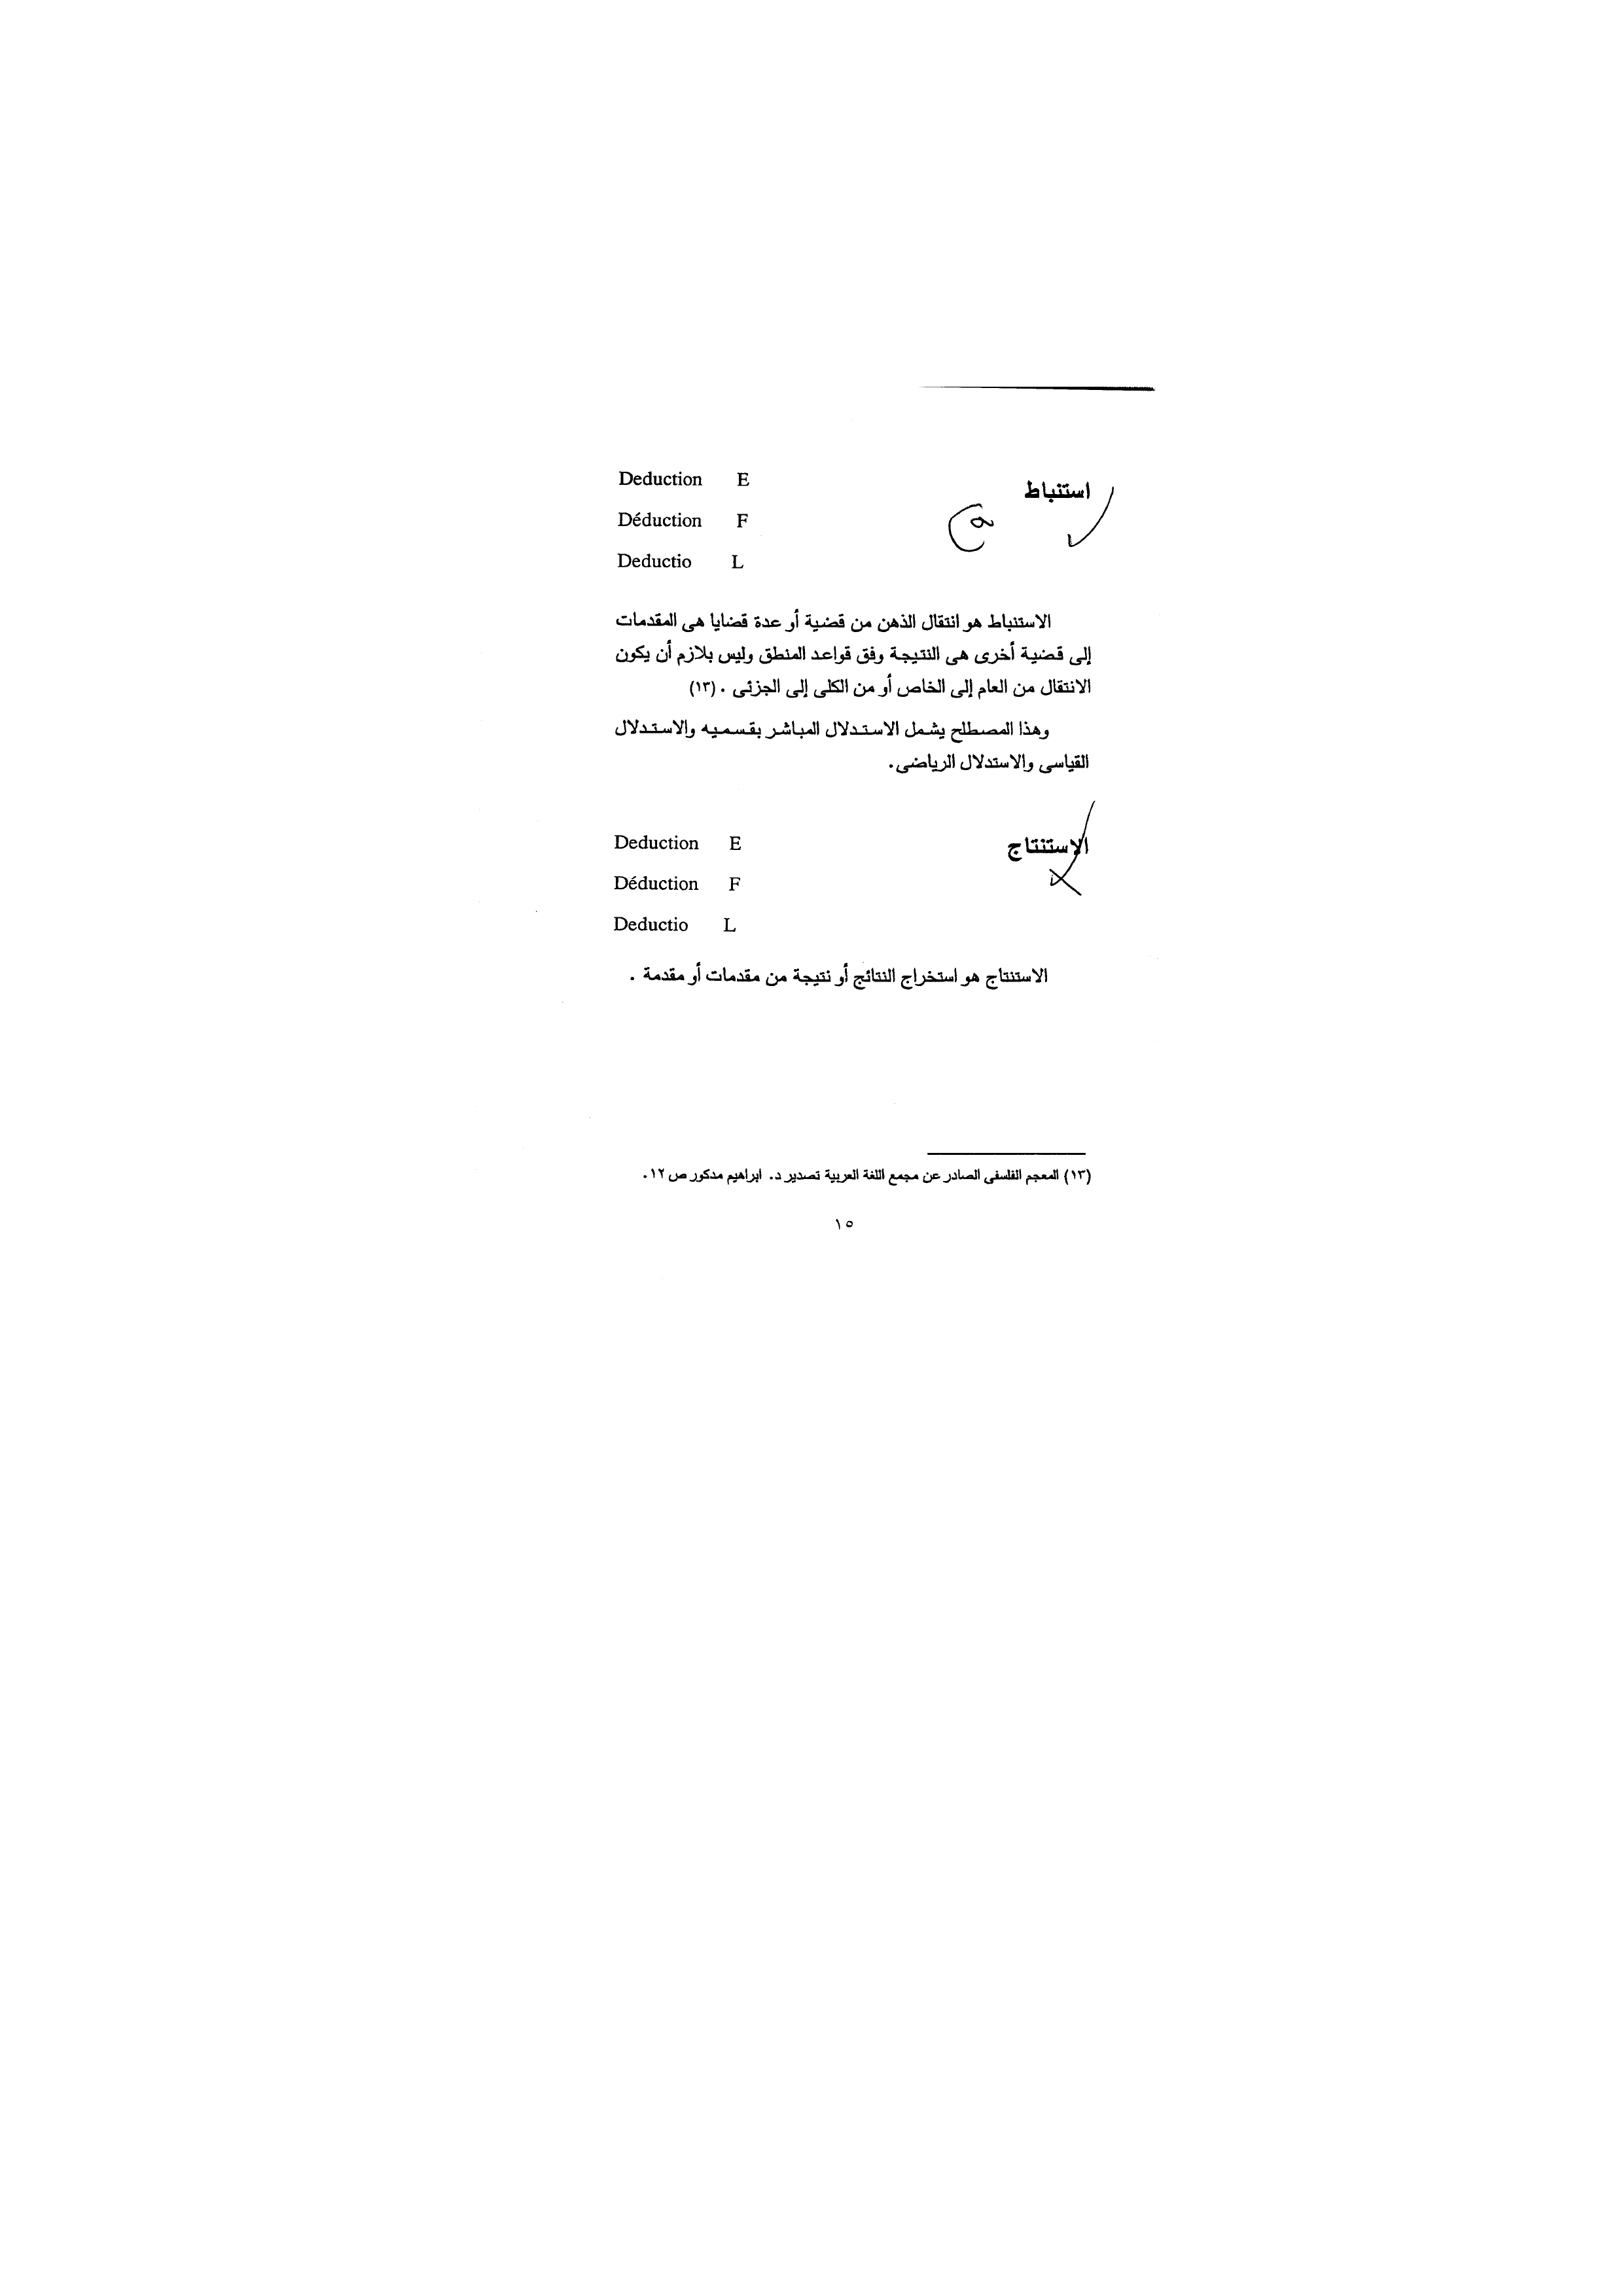 استنباط
Deduction E
Déduction F
Deductio L
الاستنباط هو انتقال الذهن من قضية أو عدة قضايا هى المقدمات
إلى قضية أخرى هى النتيجة وفق قواعد المنطق وليس بلازم أن يكون
الانتقال من العام إلى الخاص أو من الكلى إلى الجزئى . (١٣)
وهذا المصطلح يشمل الاستدلال المباشر بقسميه والاستدلال
القياسى والاستدلال الرياضى.
الاستنتاج
Deduction E
Déduction F
Deductio L
الاستنتاج هو استخراج النتائج أو نتيجة من مقدمات أو مقدمة .
(١٣) المعجم الفلسفى الصادر عن مجمع اللغة العربية تصدير د. ابراهيم مدكور ص ١٢.
١٥